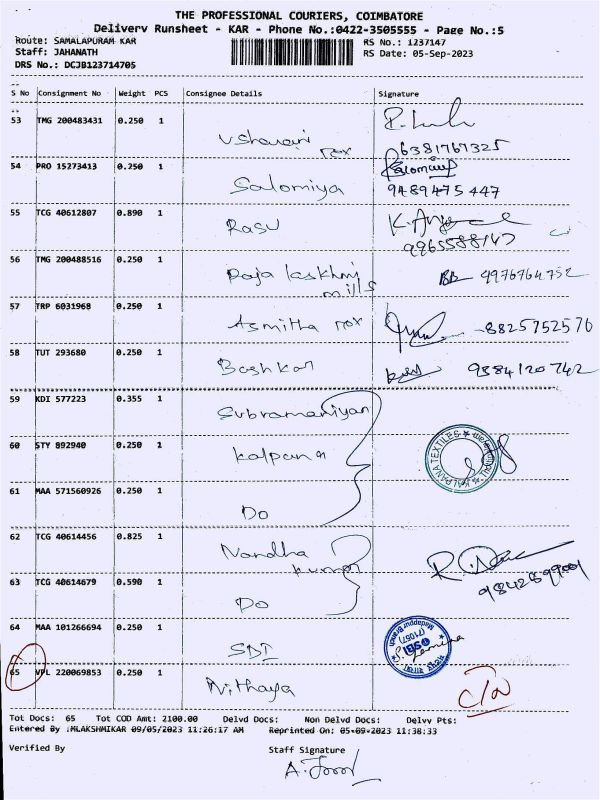 THE PROFESSIONAL COURIERS, COIMBATORE
Delivery Runsheet - KAR - Phone No.:0422-3505555 - Page No.:5
Route: SAMALAPURAM KAR RS No.: 1237147
Staff: JAHANATH RS Date: 05-Sep-2023
DRS No.: DCJB123714705
S No Consignment No Weight PCS Consignee Details Signature
53 TMG 200483431 0.250 1
6381767325
54 PRO 15273413 0.250 1 Salomiya
9489475447
55 TCG 40612807 0.890 1 Rasu
56 TMG 200488516 0.250 1 mills
57 TRP 6031968 0.250 1 Asmitha tex 8825752576
58 TUT 293680 0.250 1 Bashkar 9384120742
59 KDI 577223 0.355 1 Subramaniyan
60 STY 892940 0.250 1 Kalpana
KALPANA TEXTILES
61 MAA 571560926 0.250 1 Do
62 TCG 40614456 0.825 1 Nandha kumar
63 TCG 40614679 0.590 1 Do
64 MAA 101266694 0.250 1 SBI
SBI
65 VPL 220069853 0.250 1 Nithaya
Tot Docs: 65 Tot COD Amt: 2100.00 Delvd Docs: Non Delvd Docs: Delvy Pts:
Entered By :MLAKSHMIKAR 09/05/2023 11:26:17 AM Reprinted On: 05-09-2023 11:38:33
Verified By Staff Signature